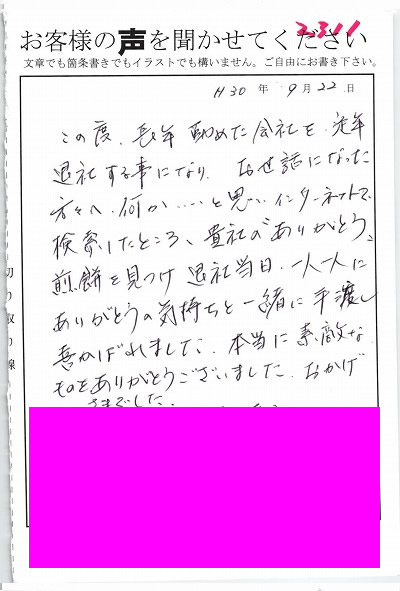 2311
お客様の声を聞かせてください
文章でも箇条書きでもイラストでも構いません。ご自由にお書き下さい。
H30年 9月22日
この度、長年 勤めた会社を 定年
退社する事になり、お世話になった
方々へ 何か……と思い インターネットで
検索したところ、貴社の"ありがとう"
煎餅を見つけ 退社当日、一人一人に
ありがとうの気持ちと一緒に手渡し
喜ばれました。本当に素敵な
ものをありがとうございました。おかげ
さまでした。
切り取り線